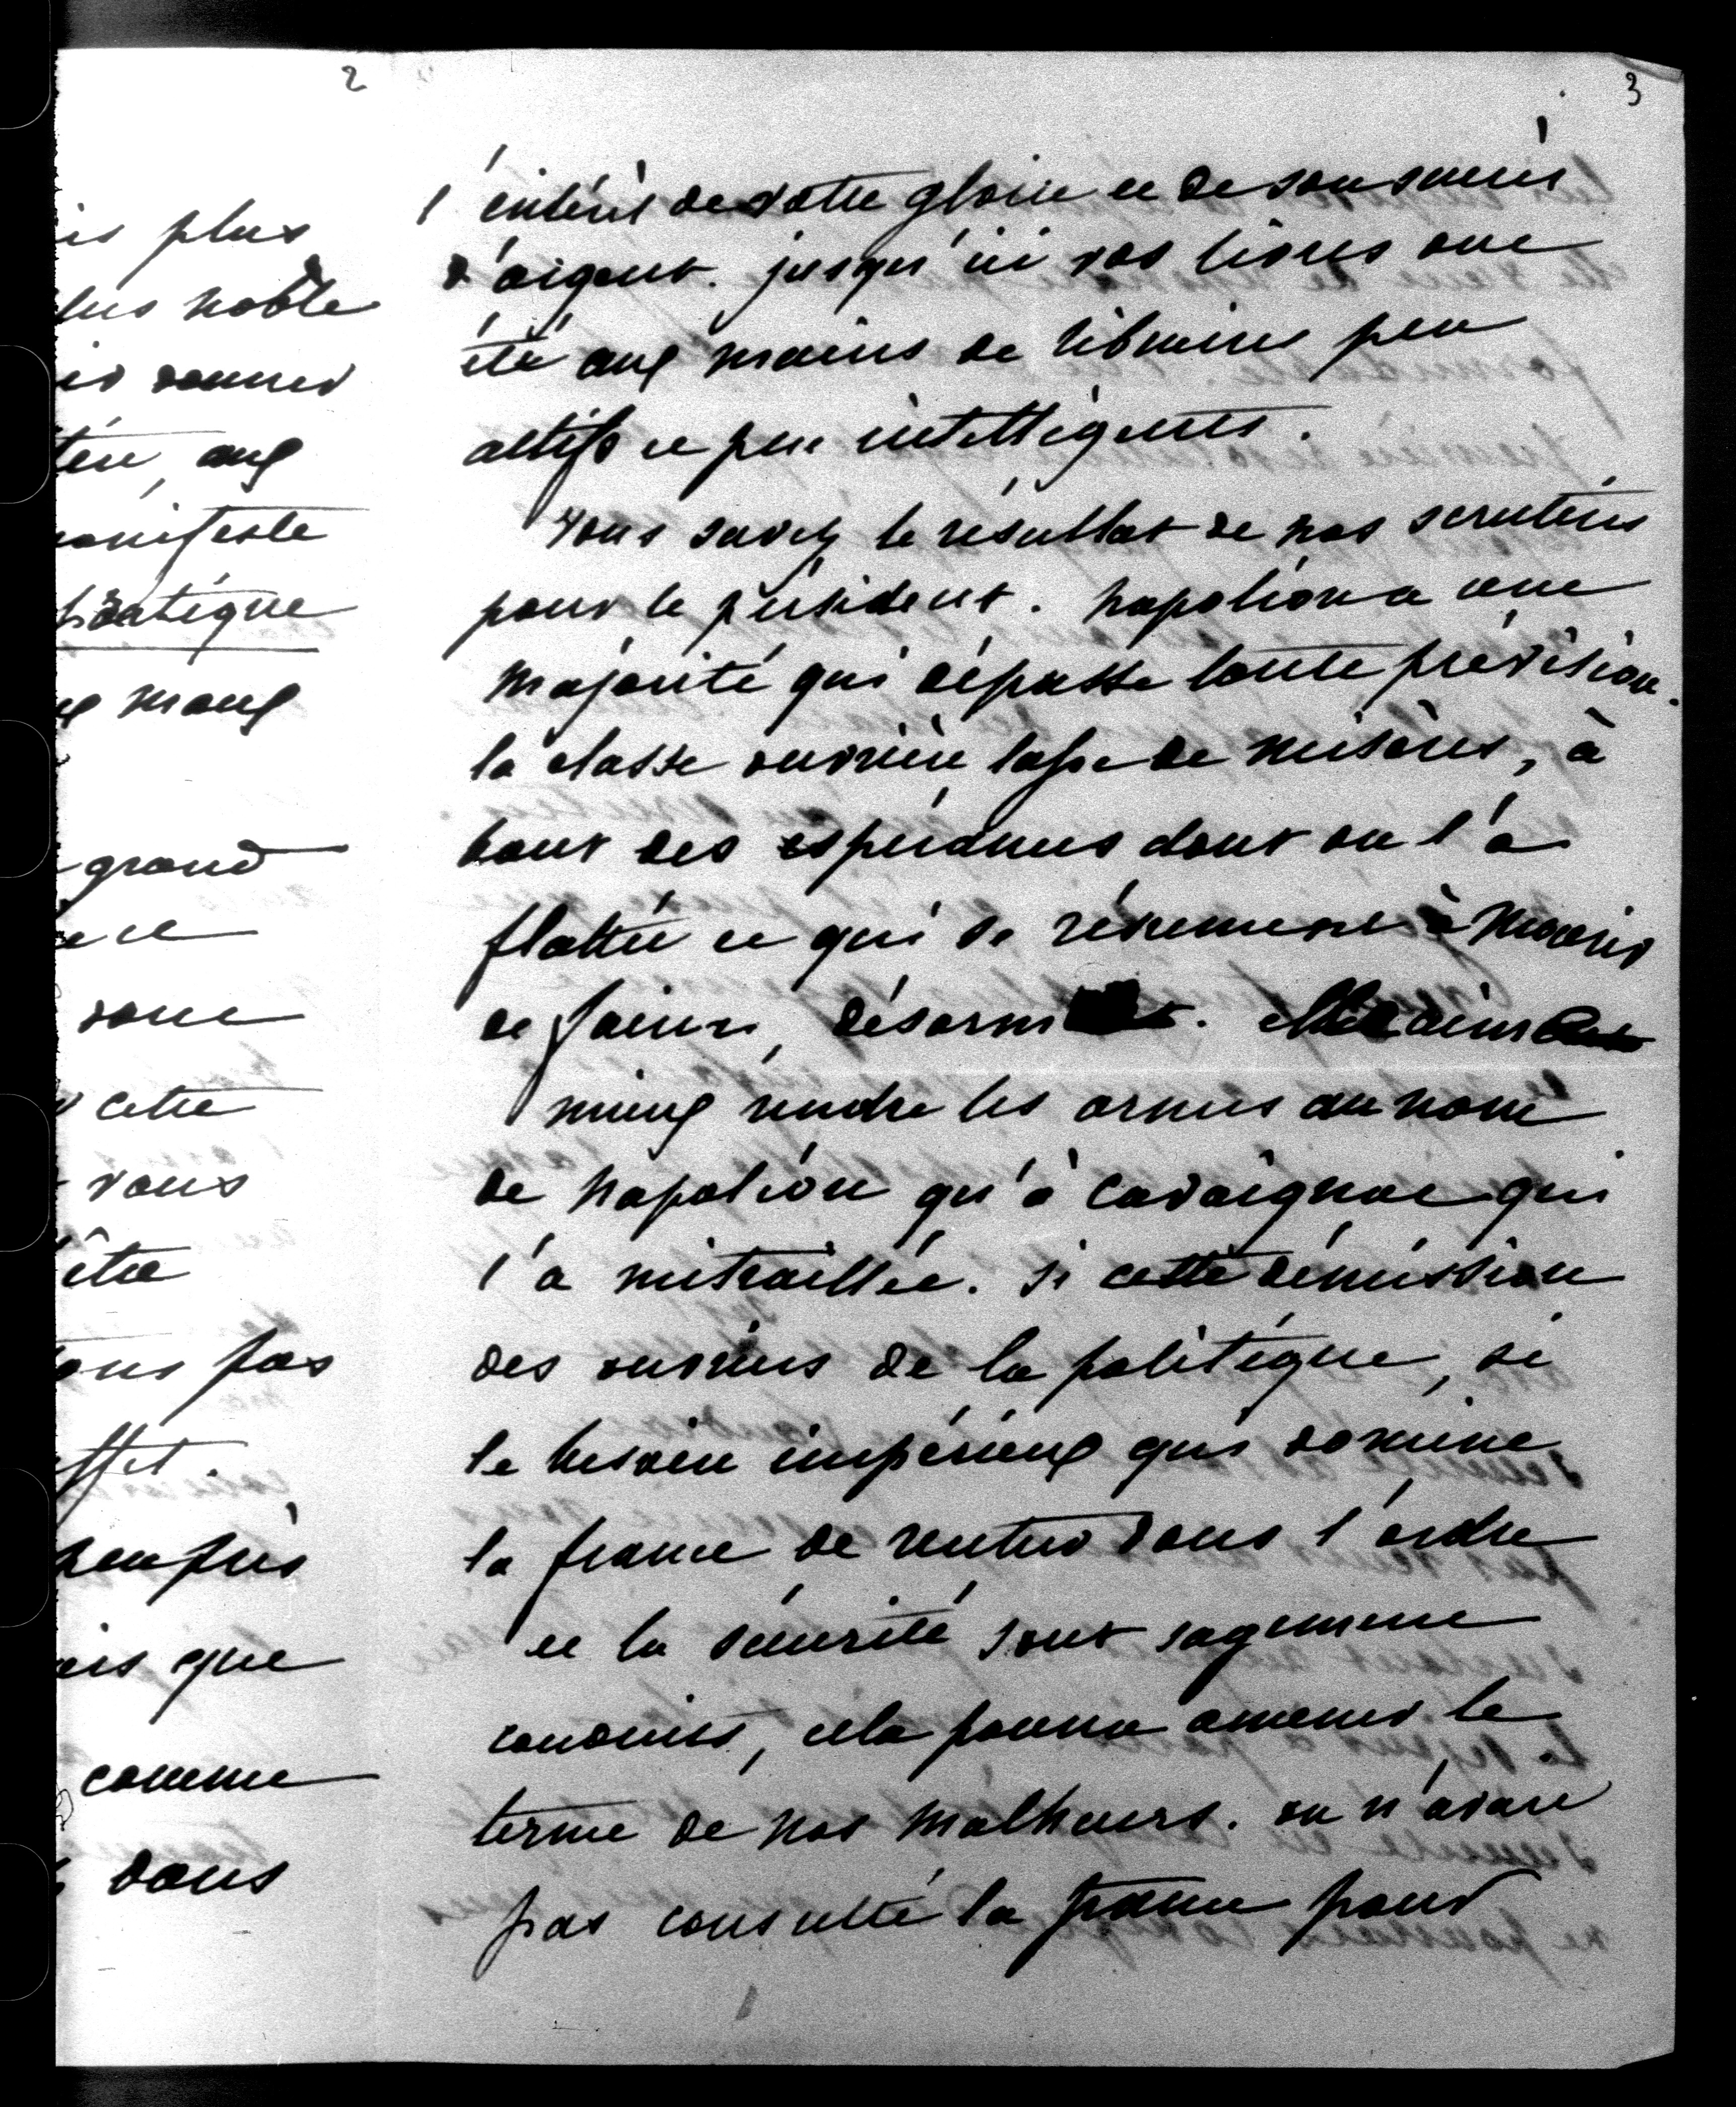 2
is plus
lus noble
donner
aux
manifeste
pratique
maux
grand
et
donc
cette
vous
être
pas
effet.
peu près
ais que
comme
dans
3
l'intérêt de votre gloire et de son succès
d'argent. jusqu'ici vos livres ont
été aux mains de libraires peu
actifs et peu intelligents.
vous savez le résultat de nos scrutins
pour le président. napoléon a une
majorité qui dépasse toute prévision.
la classe ouvrière lasse de misères, à
bout des espérances dont on l'a
flattée et qui se résument à mourir
de faim, désarme. elle aime
mieux rendre les armes au nom
de napoléon qu'à cavaignac qui
l'a mitraillée. si cette démission
des ouvriers de la politique, si
le besoin impérieux qui domine
la france de rentrer dans l'ordre
et la sécurité sont sagement
conduits, cela pourra amener le
terme de nos malheurs. on n'avait
pas consulté la france pour